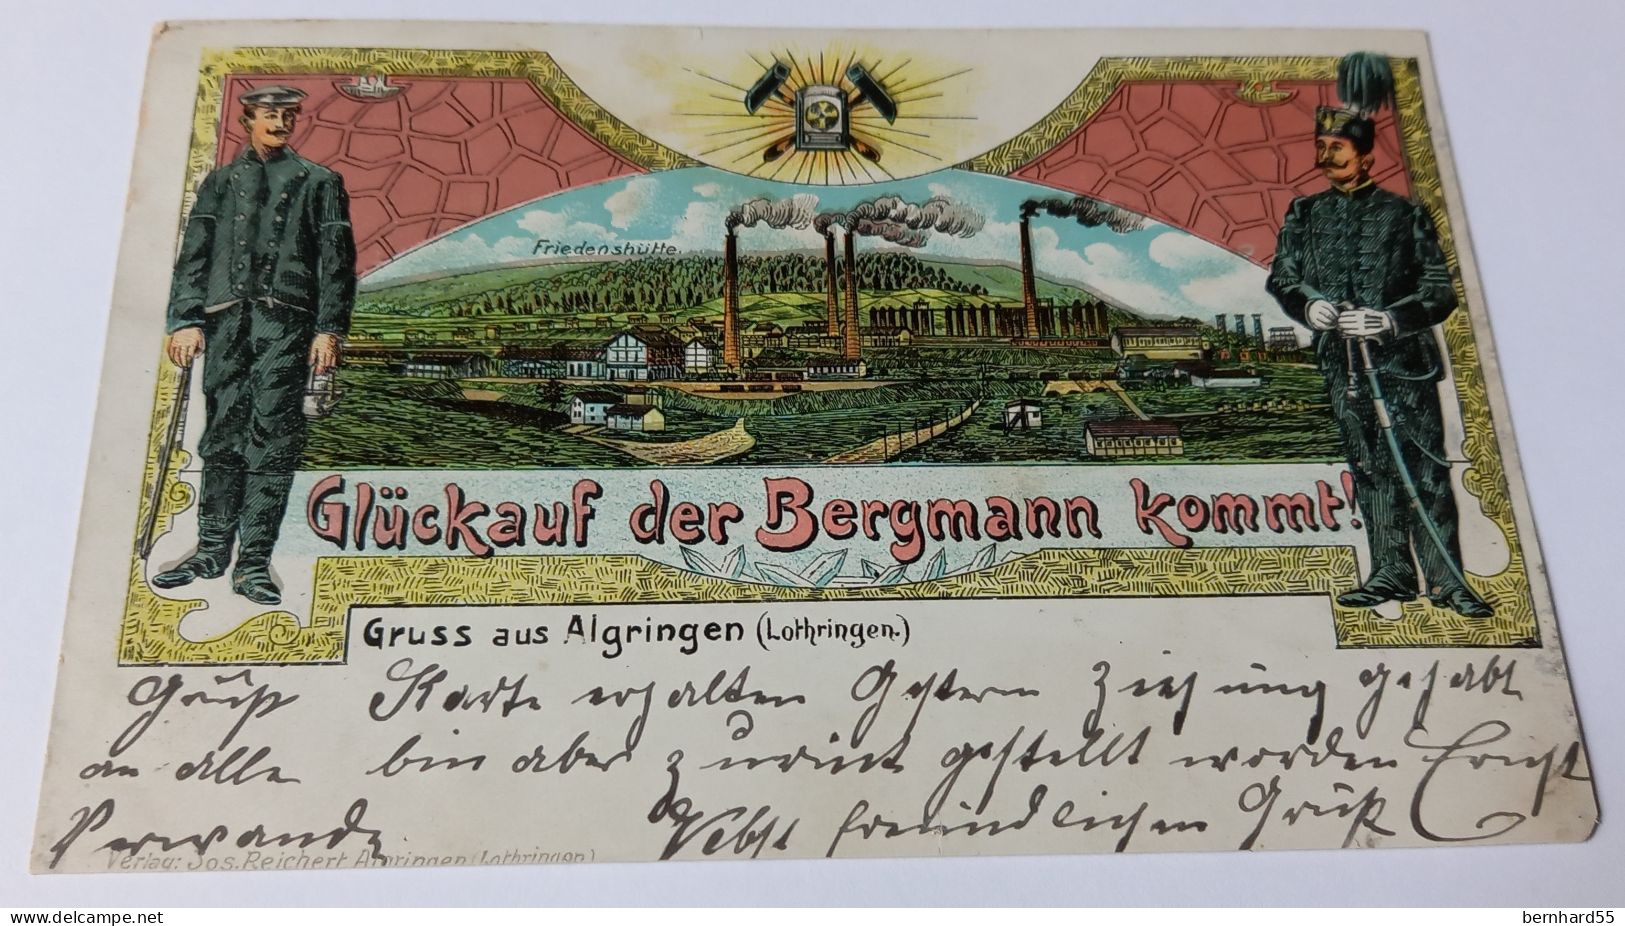 Friedenshütte.
Glückauf der Bergmann kommt!
Gruss aus Algringen (Lothringen.)
Grüße Karte erhalten Gestern Ziehung gehabt
an alle bin aber zurück gestellt worden Ernst
Verwandte Nebst freundlichen Grüße
Verlag: Jos. Reichert Algringen (Lothringen)
delcampe.net
bernhard55